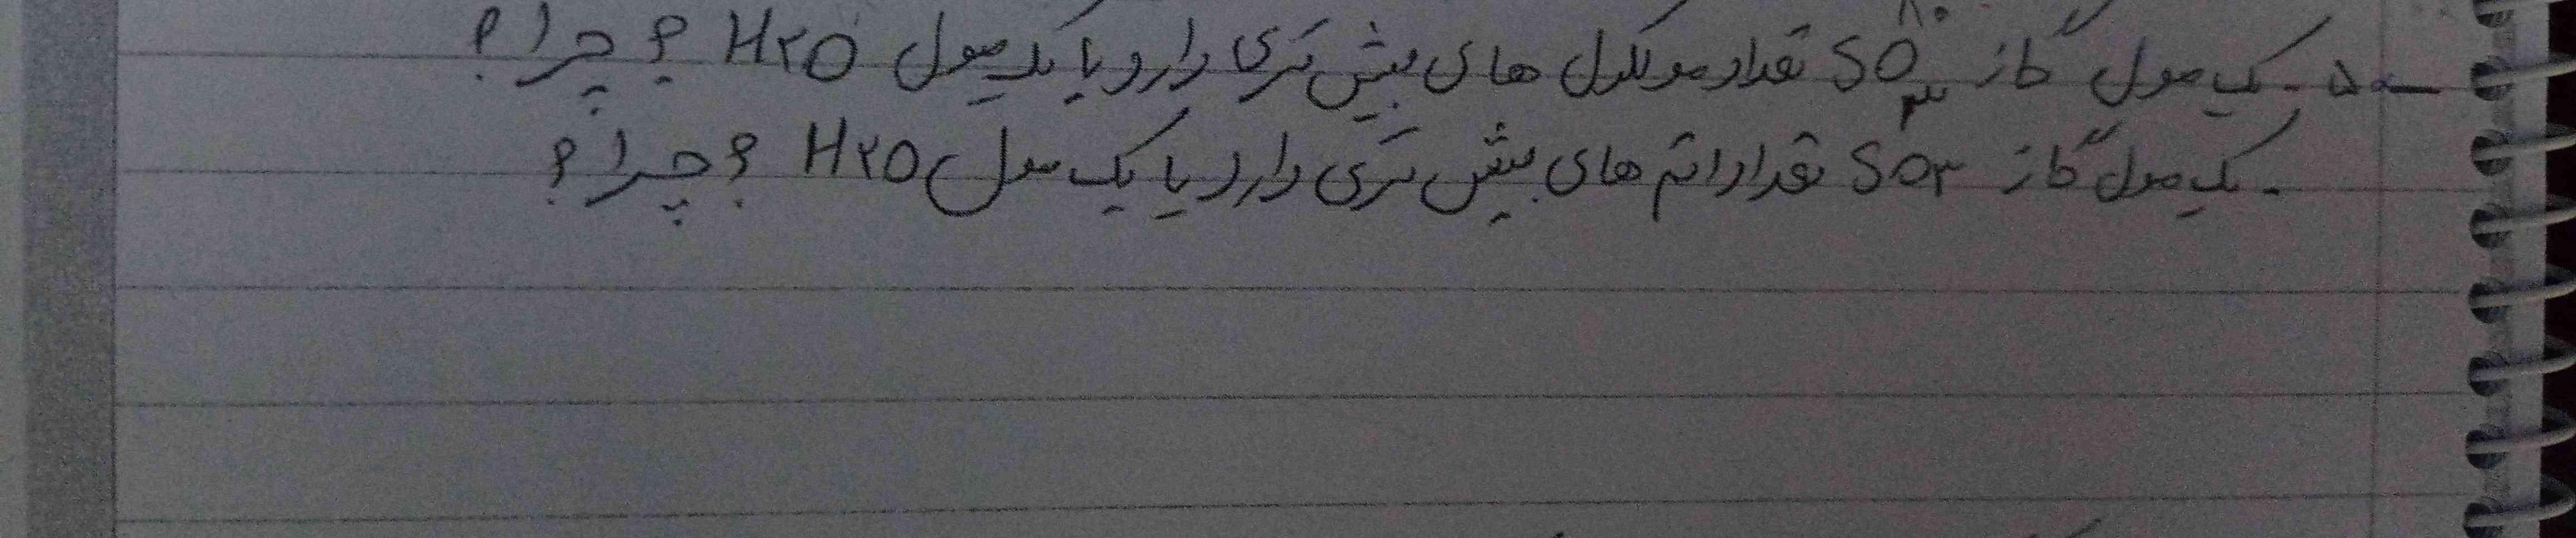 ۵- یک مول گاز SO۳ تعداد مولکول های بیش تری دارد یا یک مول H۲O ؟ چرا ؟
- یک مول گاز SO۳ تعداد اتم های بیش تری دارد یا یک مول H۲O ؟ چرا ؟